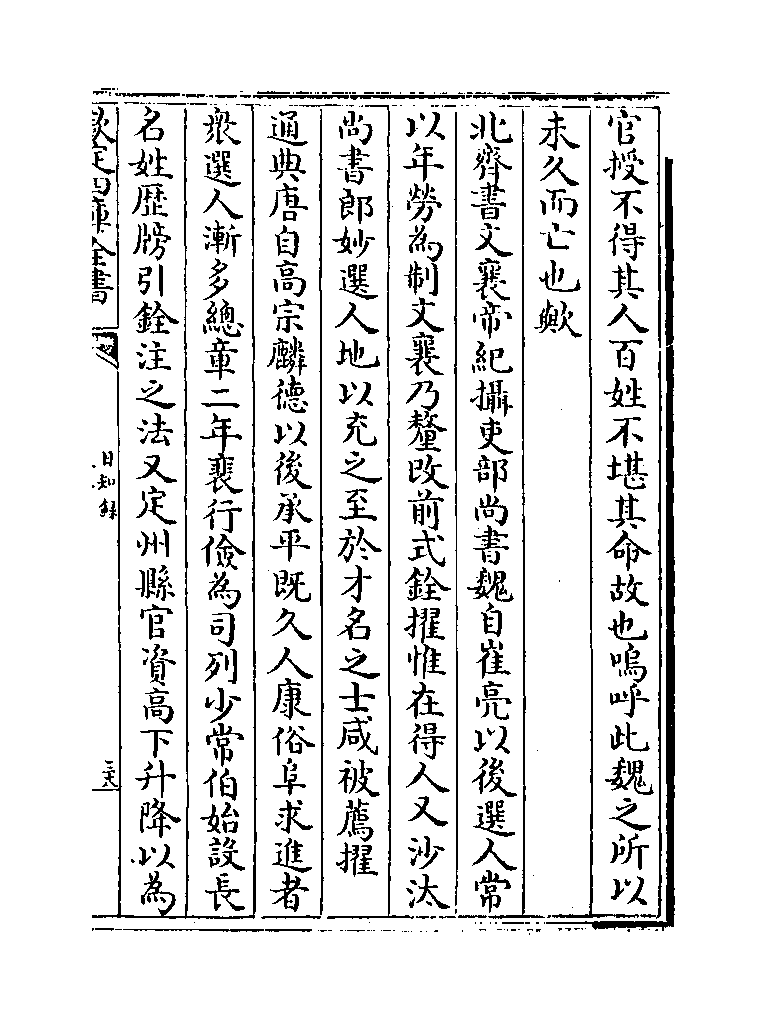 官授不得其人百姓不堪其命故也嗚呼此魏之所以
未久而亡也歟
北齊書文襄帝紀攝吏部尚書魏自崔亮以後選人常
以年勞為制文襄乃釐改前式銓擢惟在得人又沙汰
尚書郎妙選人地以充之至於才名之士咸被薦擢
通典唐自高宗麟德以後承平既久人康俗阜求進者
衆選人漸多總章二年裴行儉為司列少常伯始設長
名姓歴牓引銓注之法又定州縣官資高下升降以為
欽定四庫全書
日知録